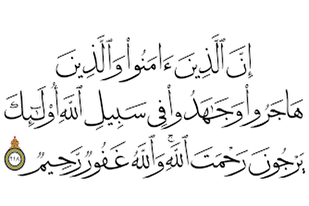 إِنَّ ٱلَّذِينَ ءَامَنُوا۟ وَٱلَّذِينَ
هَاجَرُوا۟ وَجَٰهَدُوا۟ فِى سَبِيلِ ٱللَّهِ أُو۟لَٰٓئِكَ
يَرْجُونَ رَحْمَتَ ٱللَّهِ ۚ وَٱللَّهُ غَفُورٌ رَّحِيمٌ ٢١٨